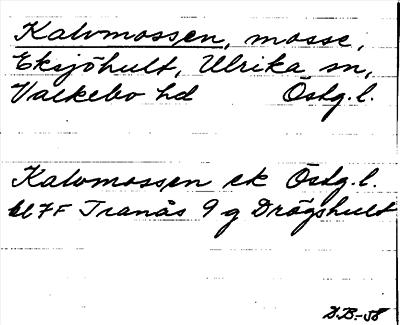 Kalvmossen, mosse,
Eksjöhult, Ulrika sn,
Valkebo hd Östg. l.
Kalvmossen ek Östg. l.
bl 7F Tranås 9 g Drögshult
D.B.-58